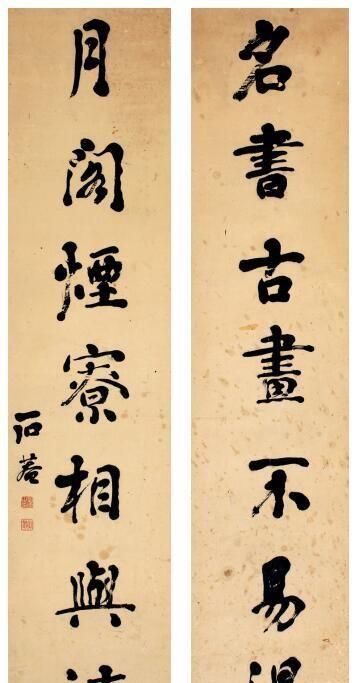 名書古畫不易得
月閣煙寮相與
石菴